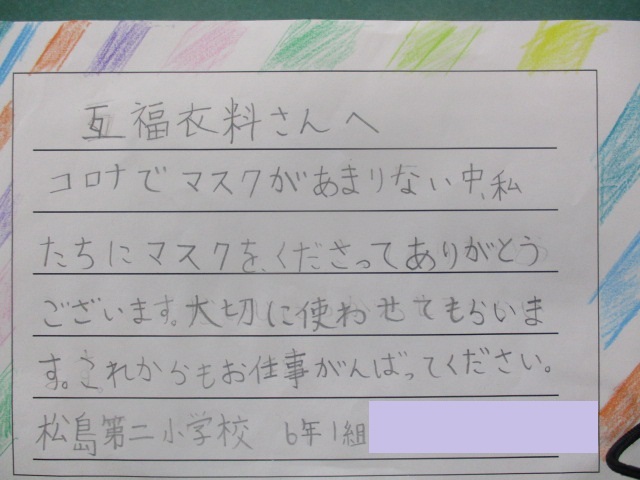 互福衣料さんへ
コロナでマスクがあまりない中、私
たちにマスクを、くださってありがとう
ございます。大切に使わせてもらいま
す。これからもお仕事がんばってください。
松島第二小学校 6年1組